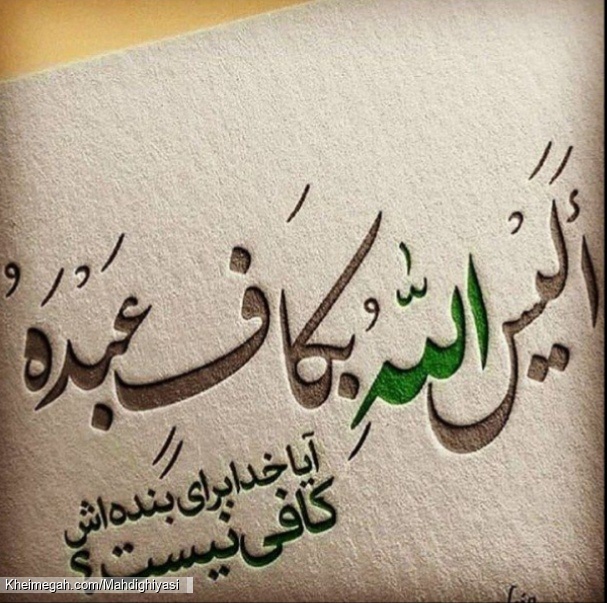 أَلَيْسَ اللّٰهُ بِكَافٍ عَبْدَهُ
آیا خدا برای بنده‌اش
کافی نیست؟
Kheimegah.com/Mahdighiyasi